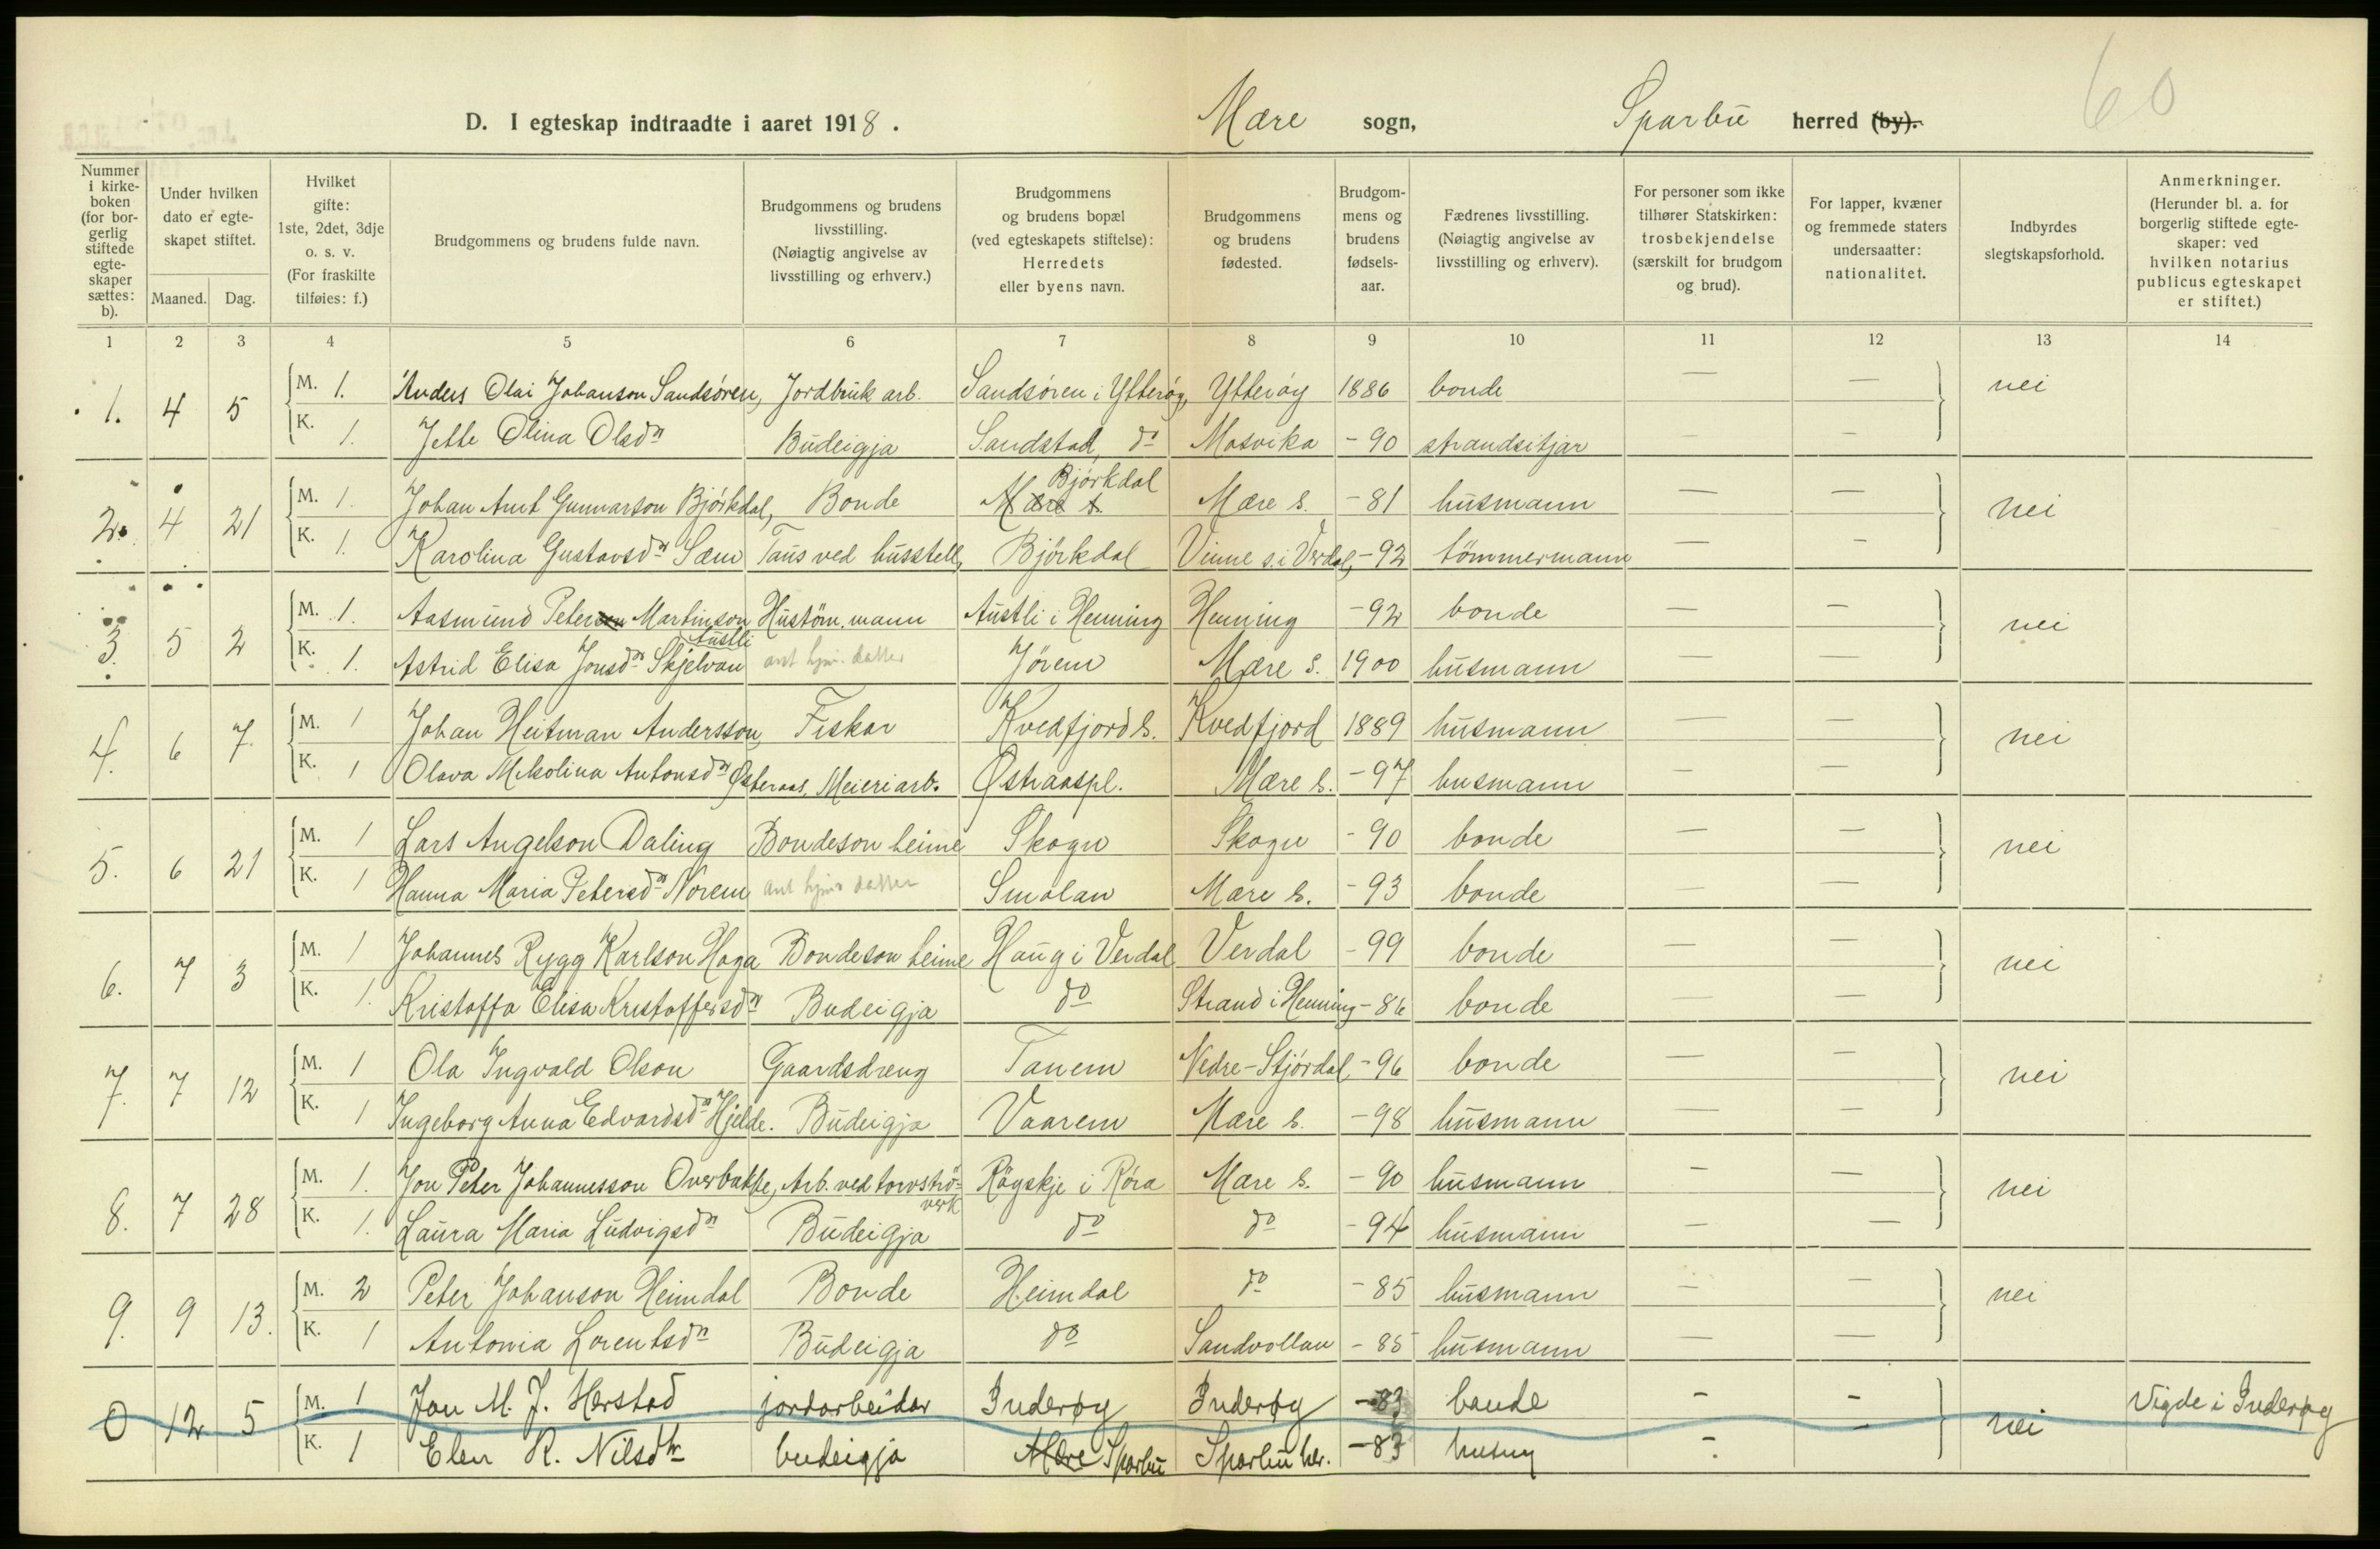 D. I egteskap indtraadte i aaret 1918. Mære sogn, Sparbu herred (by).
60
Nummer i kirkeboken (for borgerlig stiftede egteskaper sættes: b).
Under hvilken dato er egteskapet stiftet.
Maaned. Dag.
Hvilket gifte: 1ste, 2det, 3dje o. s. v. (For fraskilte tilføies: f.)
Brudgommens og brudens fulde navn.
Brudgommens og brudens livsstilling. (Nøiagtig angivelse av livsstilling og erhverv.)
Brudgommens og brudens bopæl (ved egteskapets stiftelse): Herredets eller byens navn.
Brudgommens og brudens fødested.
Brudgommens og brudens fødselsaar.
Fædrenes livsstilling. (Nøiagtig angivelse av livsstilling og erhverv).
For personer som ikke tilhører Statskirken: trosbekjendelse (særskilt for brudgom og brud).
For lapper, kvæner og fremmede staters undersaatter: nationalitet.
Indbyrdes slegtskapsforhold.
Anmerkninger. (Herunder bl. a. for borgerlig stiftede egteskaper: ved hvilken notarius publicus egteskapet er stiftet.)
1 2 3 4 5 6 7 8 9 10 11 12 13 14
1. 4 5 M. 1. Anders Olai Johanson Sandsören, Jordbruk arb. Sandsören i Ytterøy, Ytterøy 1886 bonde — — nei
K. 1. Jette Olina Olsdn Budeigja Sandstad, do Mosvika - 90 strandsitjar — —
2. 4 21 M. 1. Johan Arnt Gunnarson Björkdal, Bonde Mære s. Björkdal Mære s. - 81 husmann — — nei
K. 1. Karolina Gustavsdn Sæm Taus ved husstell, Björkdal Vinne s. i Verdal, - 92 tömmermann — —
3. 5 2 M. 1. Aasmund Petersen Martinson Austli Hustöm. mann Austli i Henning Henning - 92 bonde — — nei
K. 1. Astrid Elisa Jonsdn Skjelvan ant hjm. datter Jörem Mære s. 1900 husmann — —
4. 6 7. M. 1 Johan Heitman Andersson, Fiskar Kvedfjord s. Kvedfjord 1889 husmann — — nei
K. 1 Olava Nikolina Antonsdn Østeraas, Meieriarb. Østraaspl. Mære s. - 97 husmann — —
5. 6 21 M. 1 Lars Angelson Daling Bondeson heime Skogn Skogn - 90 bonde — — nei
K. 1 Hanna Maria Petersdn Norem ant hjm. datter Smolan Mære s. - 93 bonde — —
6. 7 3 M. 1 Johannes Rygg Karlson Haga Bondeson heime Haug i Verdal Verdal - 99 bonde — — nei
K. 1. Kristoffa Elisa Kristoffersdn Budeigja do Strand i Henning - 86 bonde — —
7. 7 12 M. 1 Ola Ingvald Olson Gaardsdreng Tanem Nedre-Stjórdal, - 96 bonde — — nei
K. 1 Ingeborg Anna Edvardsdn Hjelde. Budeigja Vaarem Mære s. - 98 husmann — —
8. 7 28 M. 1. Jon Peter Johannesson Overbakke, Arb. ved torvströ-verk Rögskje i Røra Mære s. - 90 husmann — — nei
K. 1. Laura Maria Ludvigsdn Budeigja do do - 94 husmann — —
9. 9 13. M. 2 Peter Johanson Heimdal Bonde Heimdal do - 85 husmann — — nei
K. 1 Antonia Lorentsdn Budeigja do Sandvollan - 85 husmann — —
0 12 5 M. 1 Jon M. J. Herstad jordarbeidar Inderøy Inderøy - 83 bonde - - nei Vigde i Inderøy
K. 1 Elen K. Nilsdtr budeigja Mære Sparbu Sparbu her. - 83 husm - -